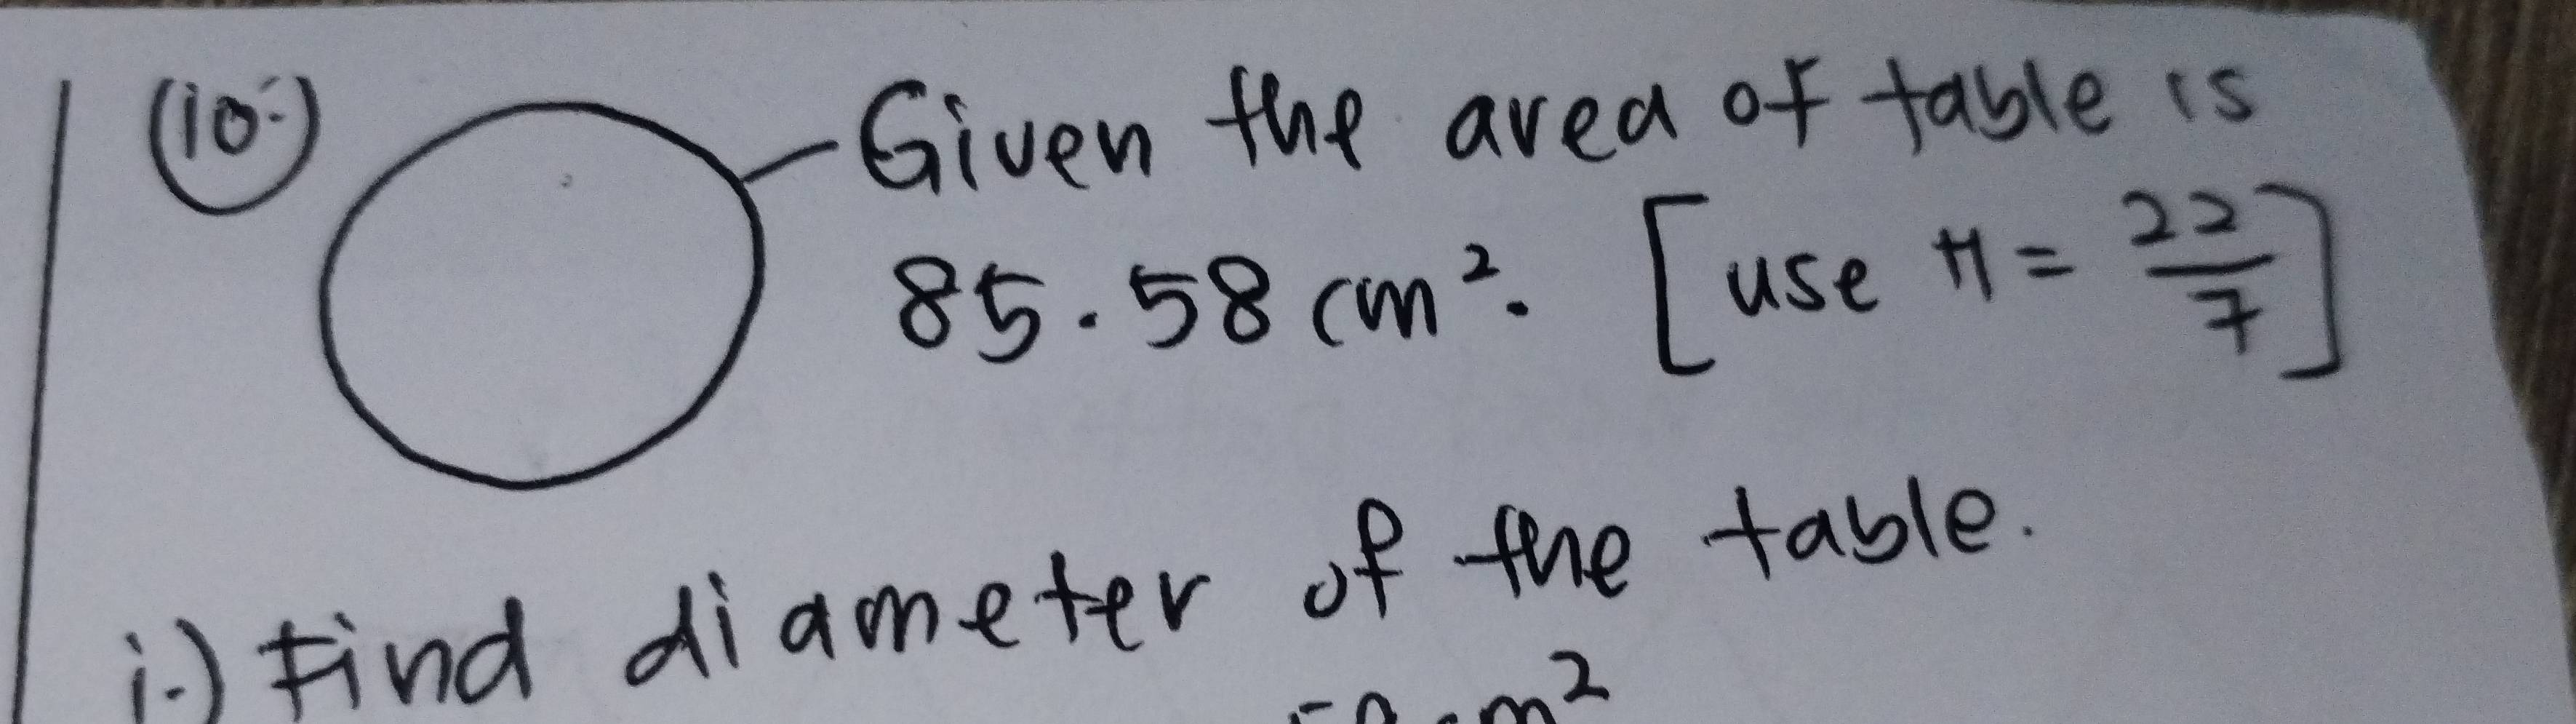 (10.) Given the area of table is
85.58 cm². [use π = 22/7]
i.) Find diameter of the table.
m²